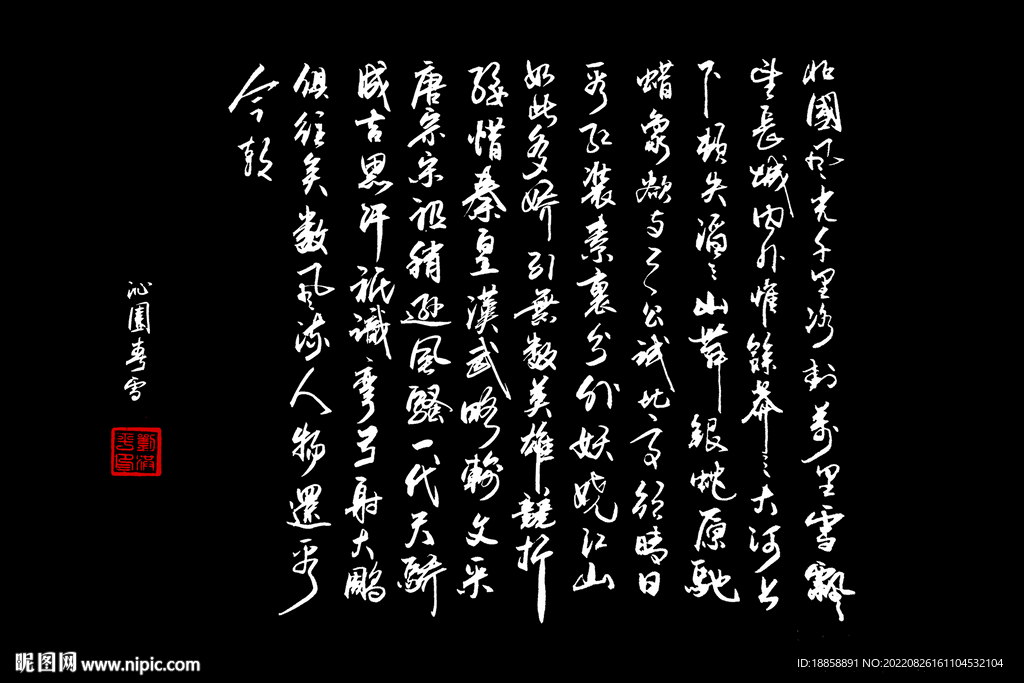 北國風光千里冰封萬里雪飄
望長城內外惟餘莽〻大河上
下頓失滔〻山舞銀蛇原馳
蜡象欲与天公試比高須晴日
看紅裝素裹分外妖嬈江山
如此多嬌引無数英雄競折
腰惜秦皇漢武略輸文采
唐宗宋祖稍遜風騷一代天驕
成吉思汗祇識彎弓射大鵰
俱往矣数風流人物還看
今朝
沁園春雪
昵图网 www.nipic.com
ID:18858891 NO:20220826161104532104